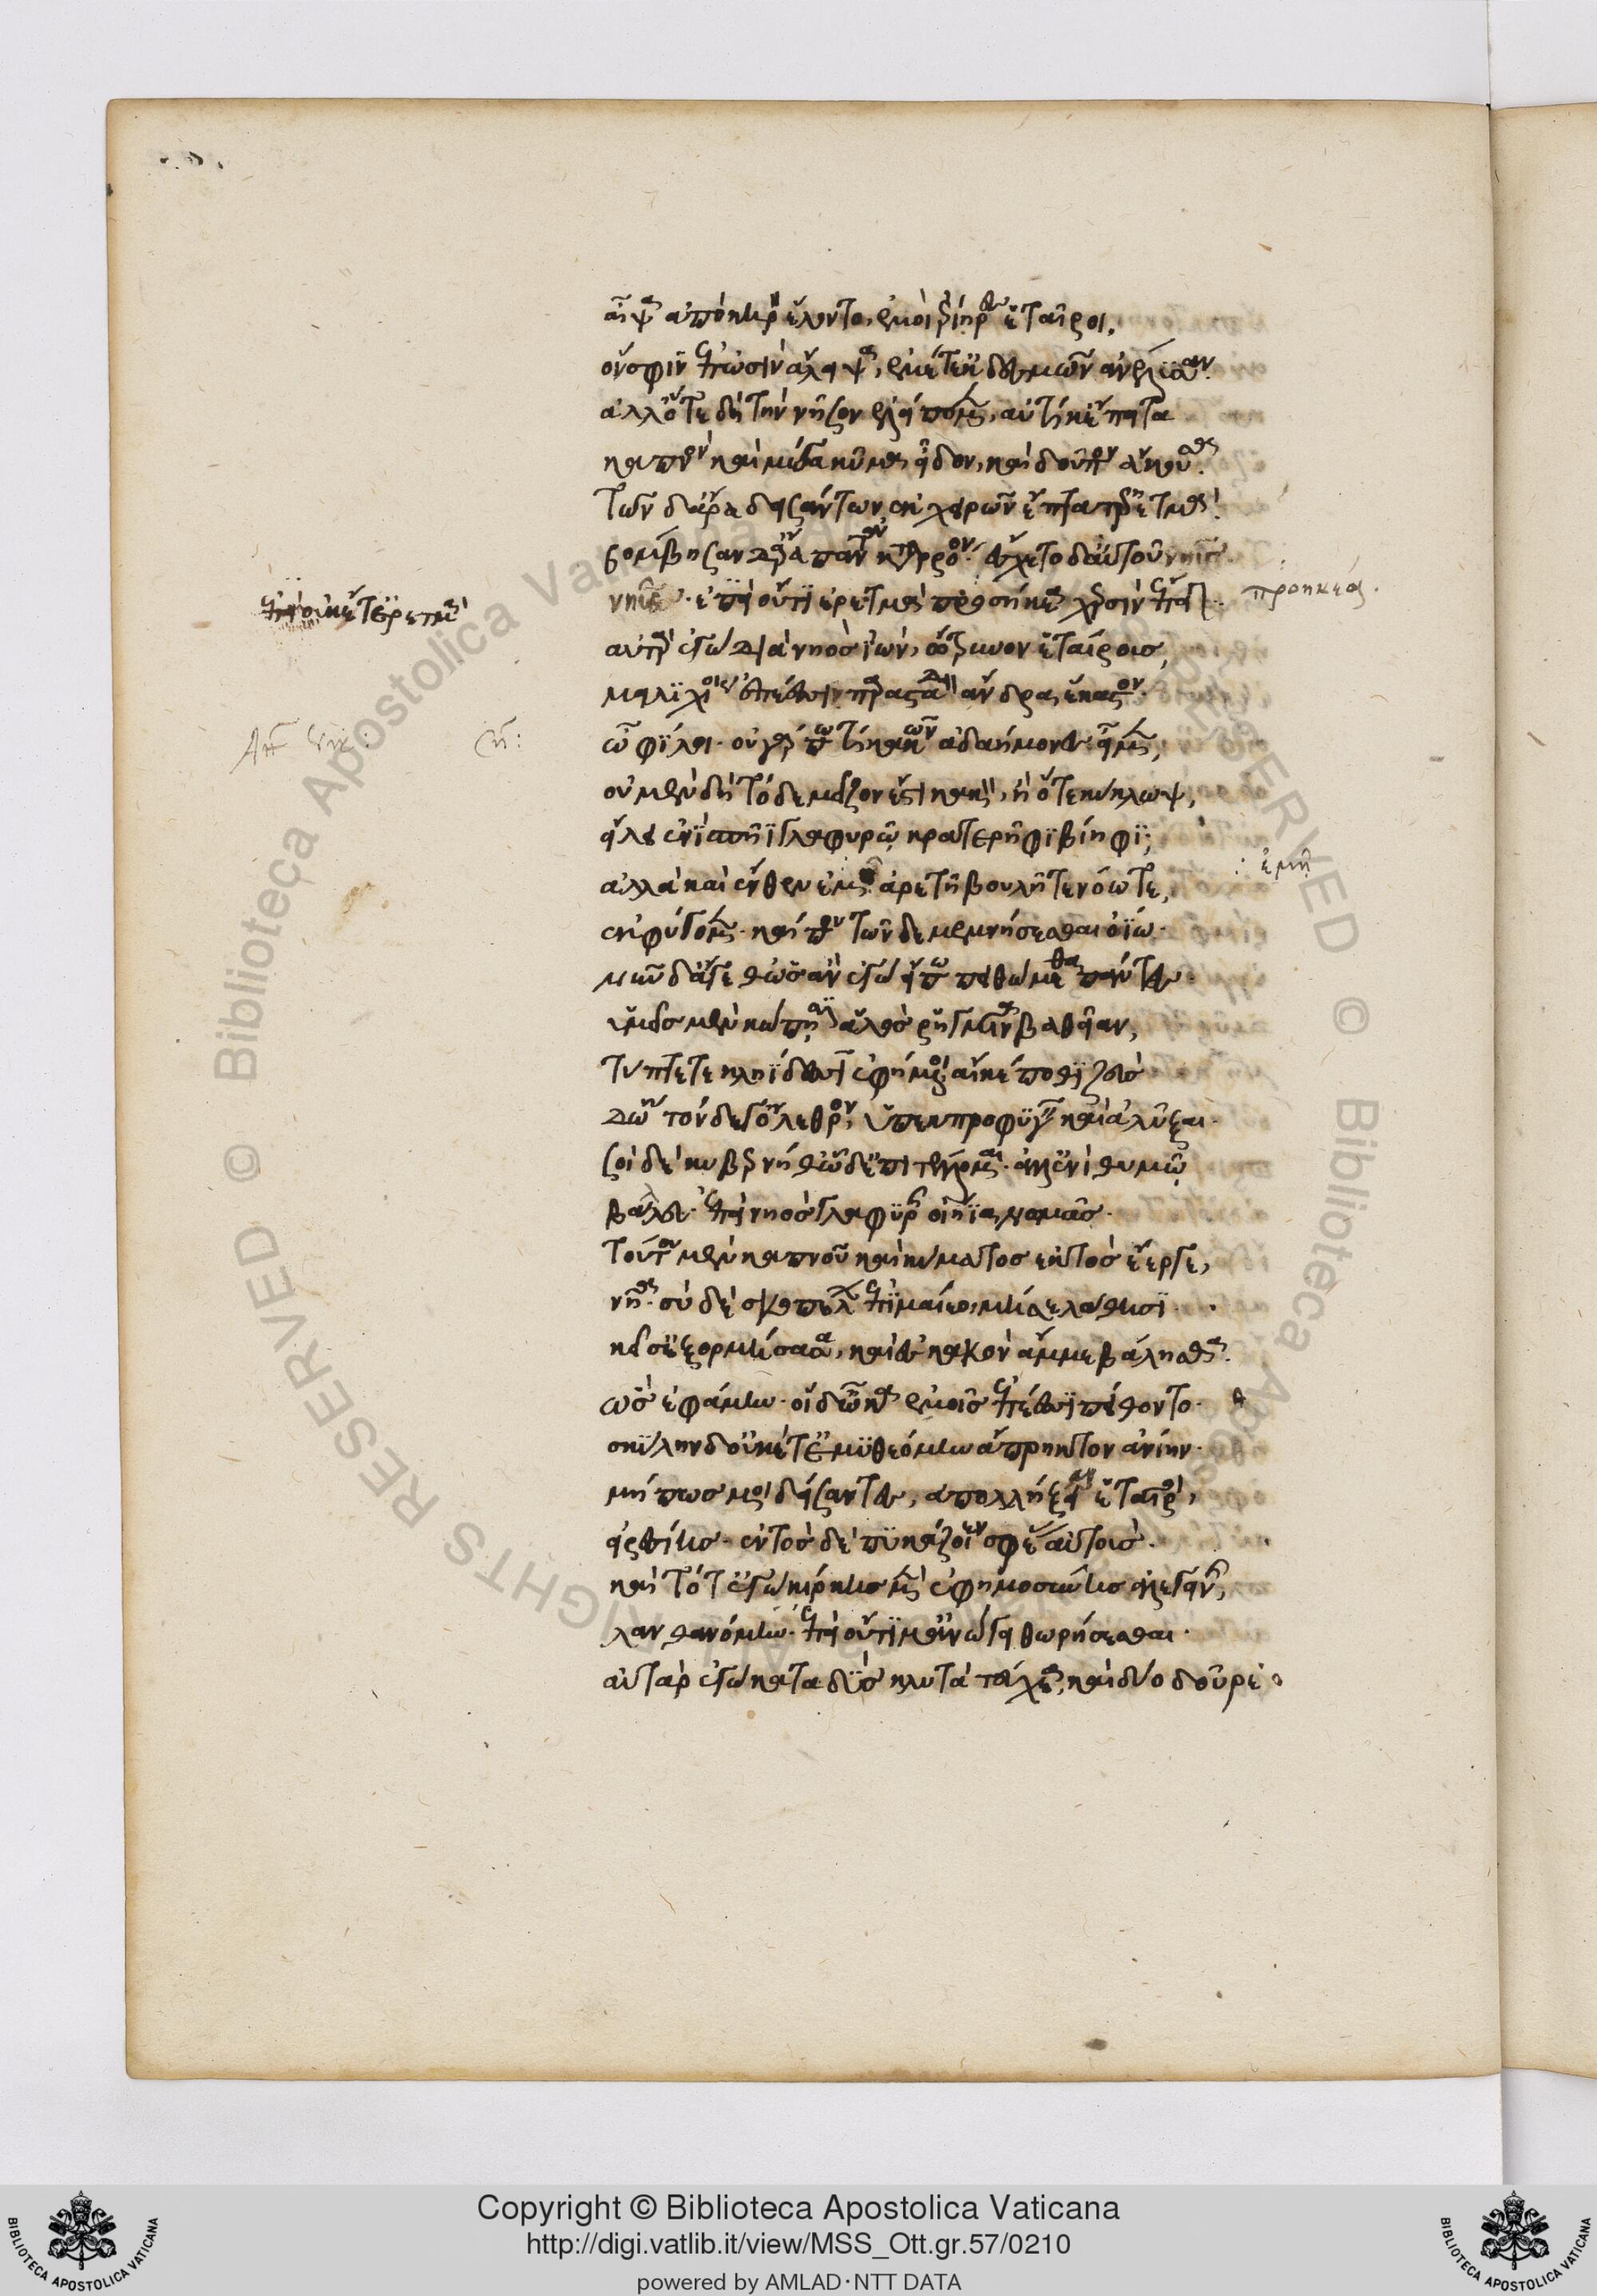 αἶψ' ἀπὸ κηρὸν ἕλοντο, ἐμοὶ ἐρίηρες ἑταῖροι,
ὅν σφιν ἐπ' ὠσὶν ἄλειψ', ἐμέ τ' ἐκ δεσμῶν ἀνέλυσαν.
ἀλλ' ὅτε δὴ τὴν νῆσον ἐλείπομεν, αὐτίκ' ἔπειτα
καπνὸν καὶ μέγα κῦμα εἶδον, καὶ δοῦπον ἄκουσα.
τῶν δ' ἄρα δεισάντων, ἐκ χειρῶν ἔπτατ' ἐρετμά.
βόμβησαν δ' ἄρα πάντα κατὰ ῥόον. ἔσχετο δ' αὐτοῦ νηῦς
ἐπεὶ οὐκέτ' ἐρετμὰ
νηῦς. ἐπεὶ οὔτι ἐρετμὰ χερσὶν ἔπειγ προήκεα.
αὐτὰρ ἐγὼ διὰ νηὸς ἰὼν, ὤτρυνον ἑταίρους,
μειλιχίοις ἐπέεσσιν παρασταδὸν ἄνδρα ἕκαστον.
ὦ φίλοι. οὐ γάρ πώ τι κακῶν ἀδαήμονες εἰμέν,
οὐ μὲν δὴ τόδε μεῖζον ἔπι κακὸν, ἢ ὅτε κύκλωψ,
εἴλει ἐνὶ σπῆϊ γλαφυρῷ κρατερῆφι βίηφι,
ἀλλὰ καὶ ἔνθεν ἐμῇ ἀρετῇ βουλῇ τε νόω τε, : ἐμῇ
ἐκφύγομεν. καί που τῶνδε μεμνήσεσθαι ὀΐω.
νῦν δ' ἄγεθ' ὡς ἂν ἐγὼ εἴπω πειθώμεθα πάντες.
ὑμεῖς μὲν κώπῃσιν ἁλὸς ῥηγμῖνα βαθεῖαν,
τύπτετε κληΐδεσσιν ἐφήμενοι, αἴ κέ ποθι ζεὺς
δώῃ τόνδε γ' ὄλεθρον, ὑπεκπροφυγεῖν καὶ ἀλύξαι.
σοὶ δὲ κυβερνῆθ' ὧδ' ἐπιτέλλομαι. ἀλλ' ἐνὶ θυμῷ
βάλλευ. ἐπεὶ νηὸς γλαφυρῆς οἰήϊα νωμᾶς.
τούτου μὲν καπνοῦ καὶ κύματος ἐκτὸς ἔεργε,
νῆα. σὺ δὲ σκοπέλων ἐπιμαίεο, μή σε λάθῃσι
κεῖσ' ἐξορμήσασα, καὶ ἐς κακὸν ἄμμε βάλησθα.
ὣς ἐφάμην. οἱ δ' ὦκα ἐμοῖς ἐπέεσσι πείθοντο.
σκύλλην δ' οὐκέτ' ἐμυθεόμην ἄπρηκτον ἀνίην.
μή πως μοι δείσαντες, ἀπολλήξειαν ἑταῖροι,
εἰρεσίης. ἐντὸς δὲ πυκάζοιεν σφέας αὐτούς.
καὶ τότ' ἐγὼ κίρκης μὲν ἐφημοσύνης ἀλεγεινῆς,
λανθανόμην. ἐπεὶ οὔτι μ' ἀνώγει θωρήσσεσθαι.
αὐτὰρ ἐγὼ καταδὺς κλυτὰ τεύχεα, καὶ δύο δοῦρε
Copyright © Biblioteca Apostolica Vaticana
http://digi.vatlib.it/view/MSS_Ott.gr.57/0210
powered by AMLAD·NTT DATA